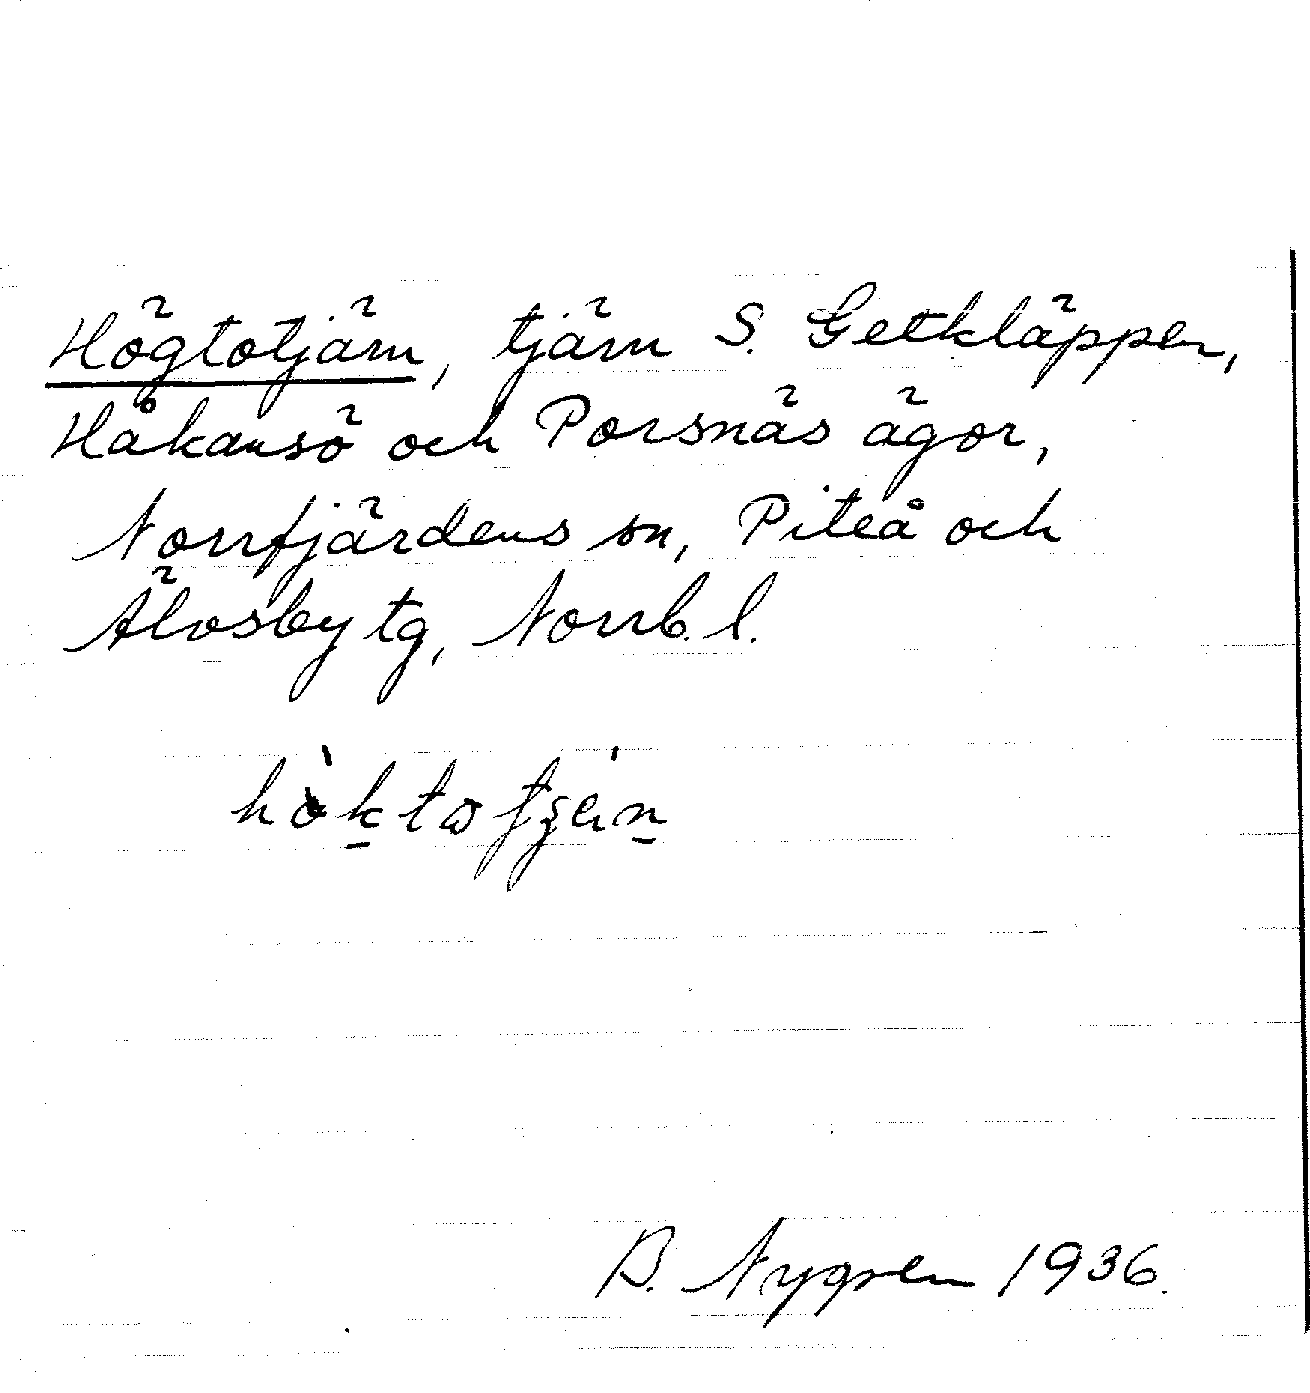 Högtotjärn, tjärn S. Getkläppen,
Håkansö och Porsnäs ägor,
Norrfjärdens sn, Piteå och
Älvsby tg, Norrb. l.
B. Nygren 1936.